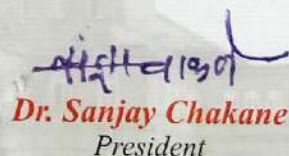 Dr. Sanjay Chakane
President